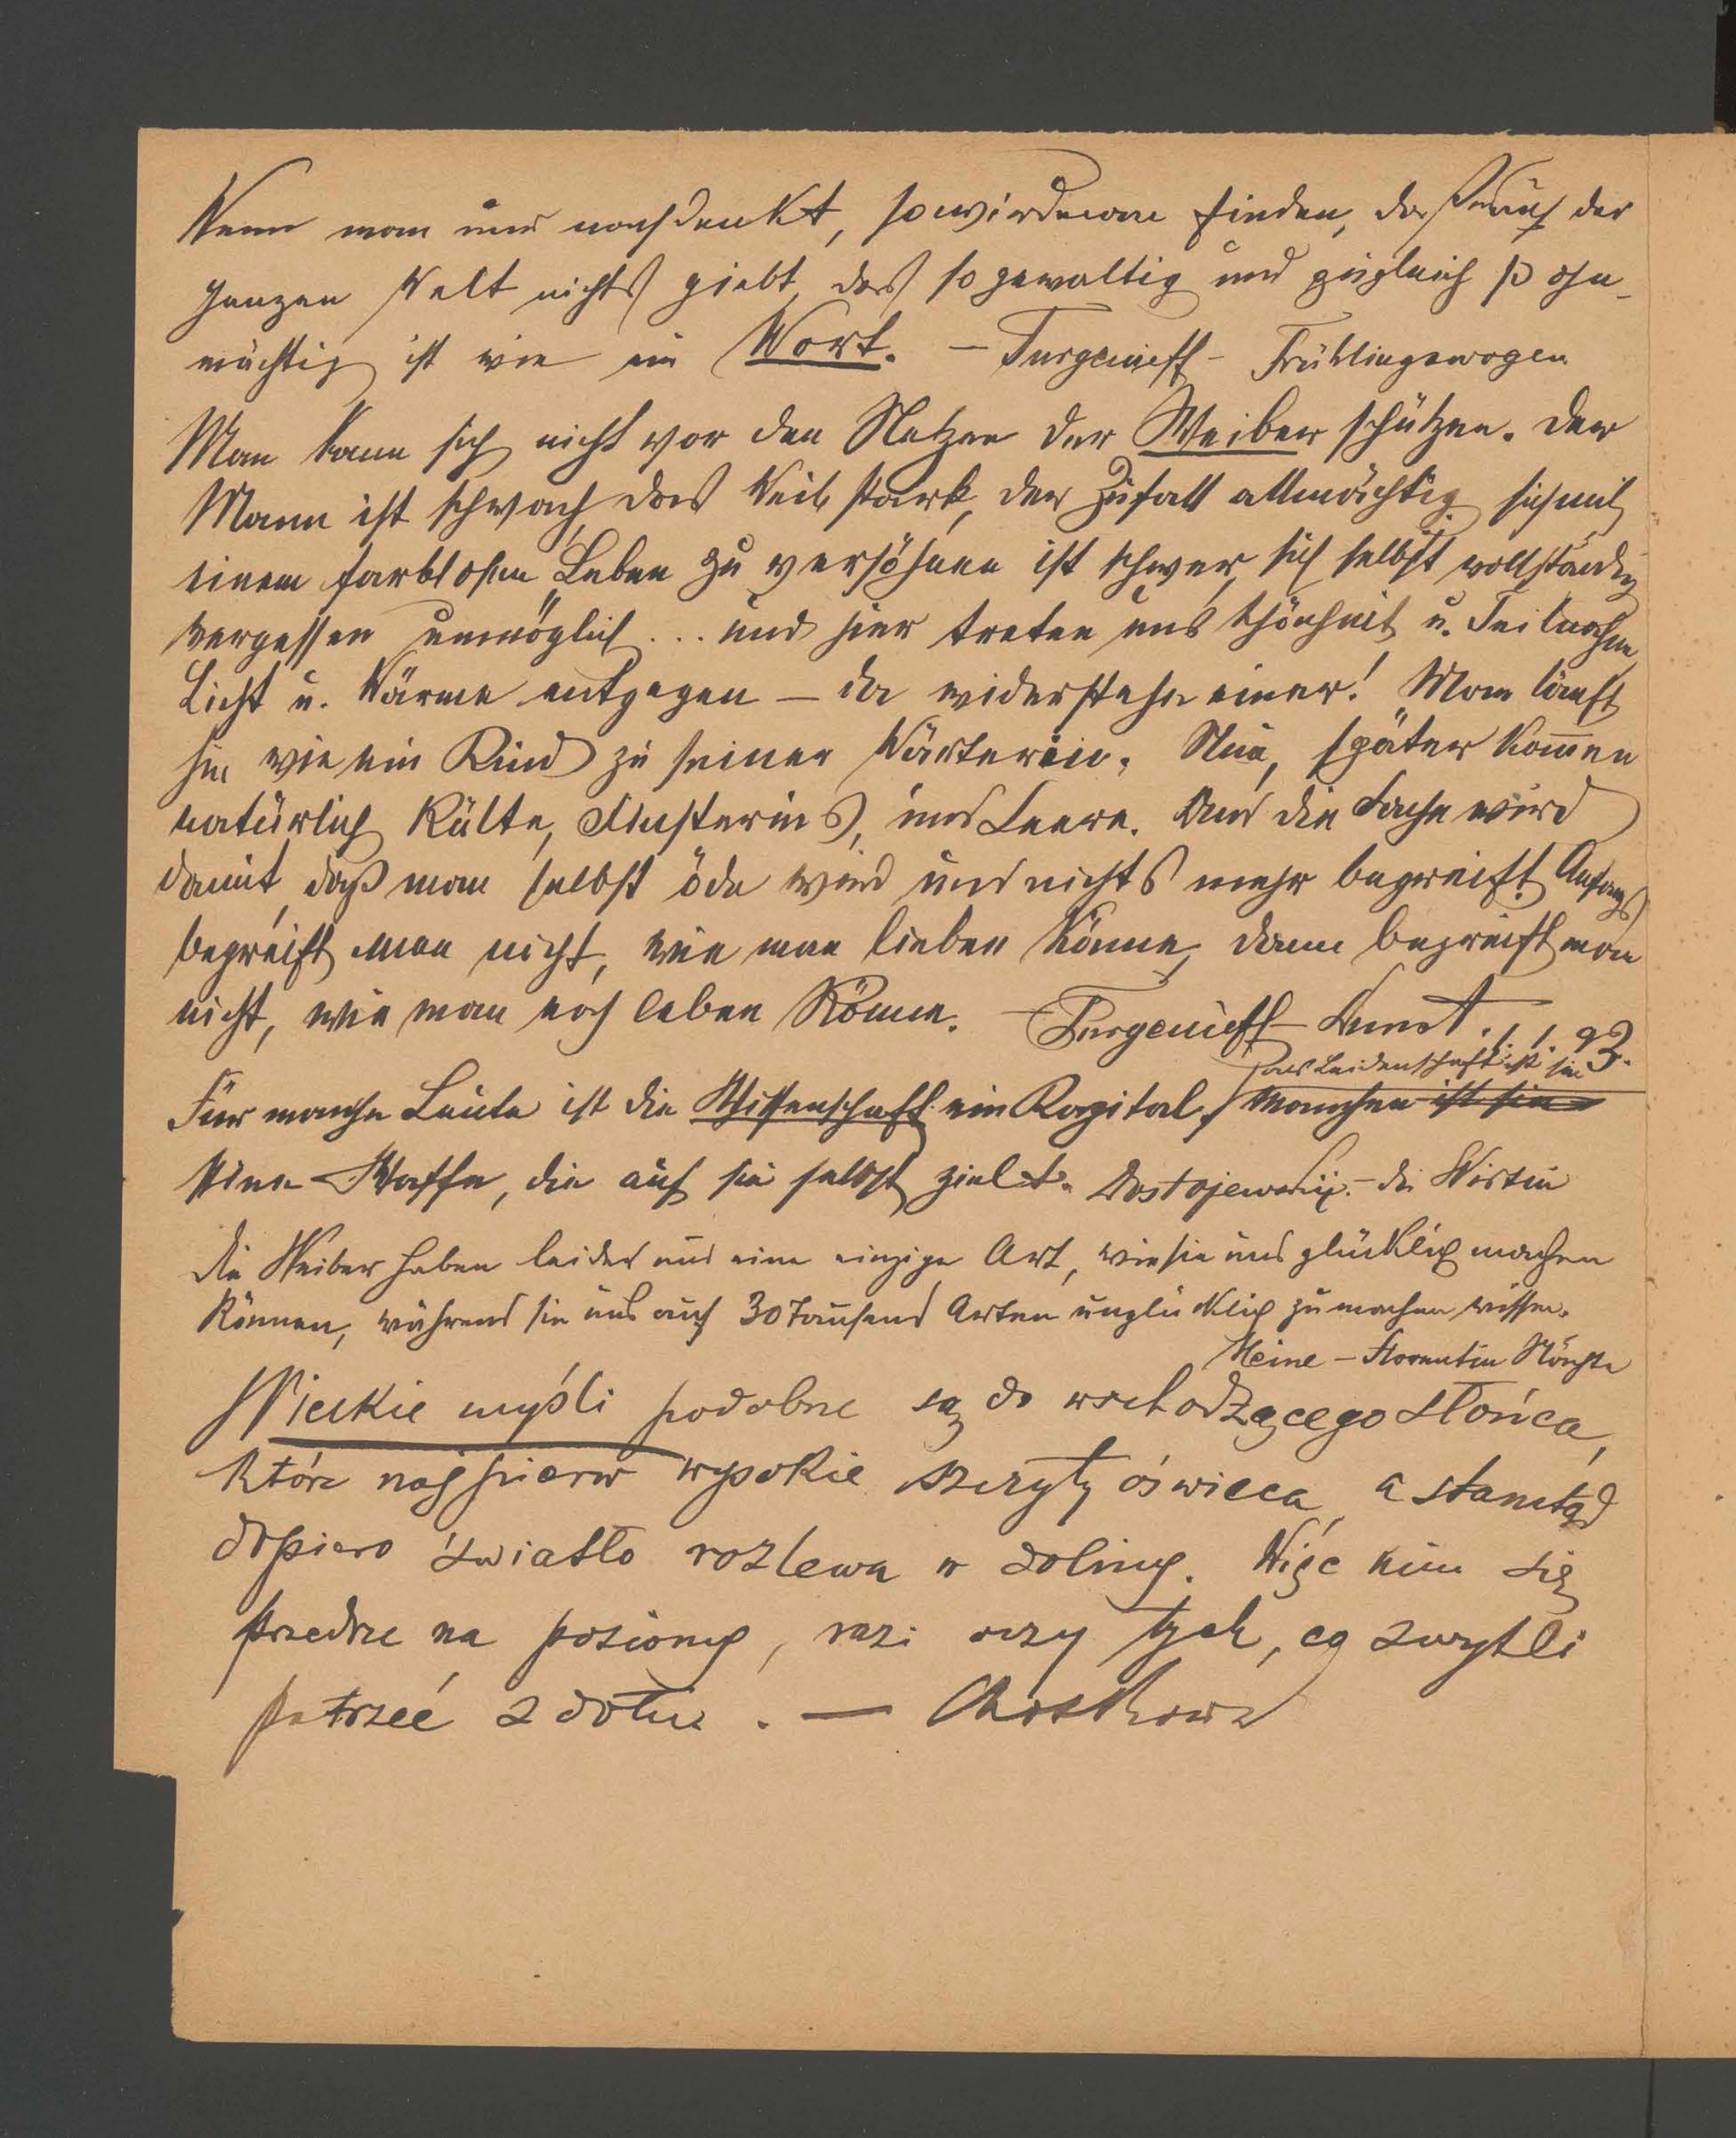 Wenn man nur nachdenkt, so wird man finden, daß es auf der
ganzen Welt nichts giebt, das so gewaltig und zugleich so ohn-
mächtig ist wie ein Wort. – Turgenieff – Frühlingswogen
Man kann sich nicht vor den Netzen der Weiber schützen. Der
Mann ist schwach, das Weib stark, der Zufall allmächtig, sich mit
einem farblosen Leben zu versöhnen ist schwer, sich selbst vollständig
vergessen unmöglich ... und hier treten uns Schönheit u. Teilnahme,
Licht u. Wärme entgegen – da widerstehe einer! Man läuft
hin wie ein Kind zu seiner Wärterin. Nun, später kommen
natürlich Kälte, Finsternis, und Leere. Und die Sache wird
damit, daß man selbst öde wird und nichts mehr begreift. Anfangs
begreift man nicht, wie man lieben könne, dann begreift man
nicht, wie man noch leben könne. – Turgenieff – Dunst. 1. 1. 93.
das Leidenschaft ist sie
Für manche Leute ist die Wissenschaft ein Kapital, manchen ist sie
eine Waffe, die auf sie selbst zielt. Dostojewskij. – die Wirtin
Die Weiber haben leider nur eine einzige Art, wie sie uns glücklich machen
können, während sie uns auf 30 Tausend Arten unglücklich zu machen wissen.
Heine – Florentin Nächte
Wielkie myśli podobne są do wschodzącego słońca,
które najpierw wysokie szczyty oświeca, a stamtąd
dopiero światło rozlewa w doliny. Więc nim się
przedrze na poziomy, razi oczy tych, co zwykli
patrzeć z dołu. –